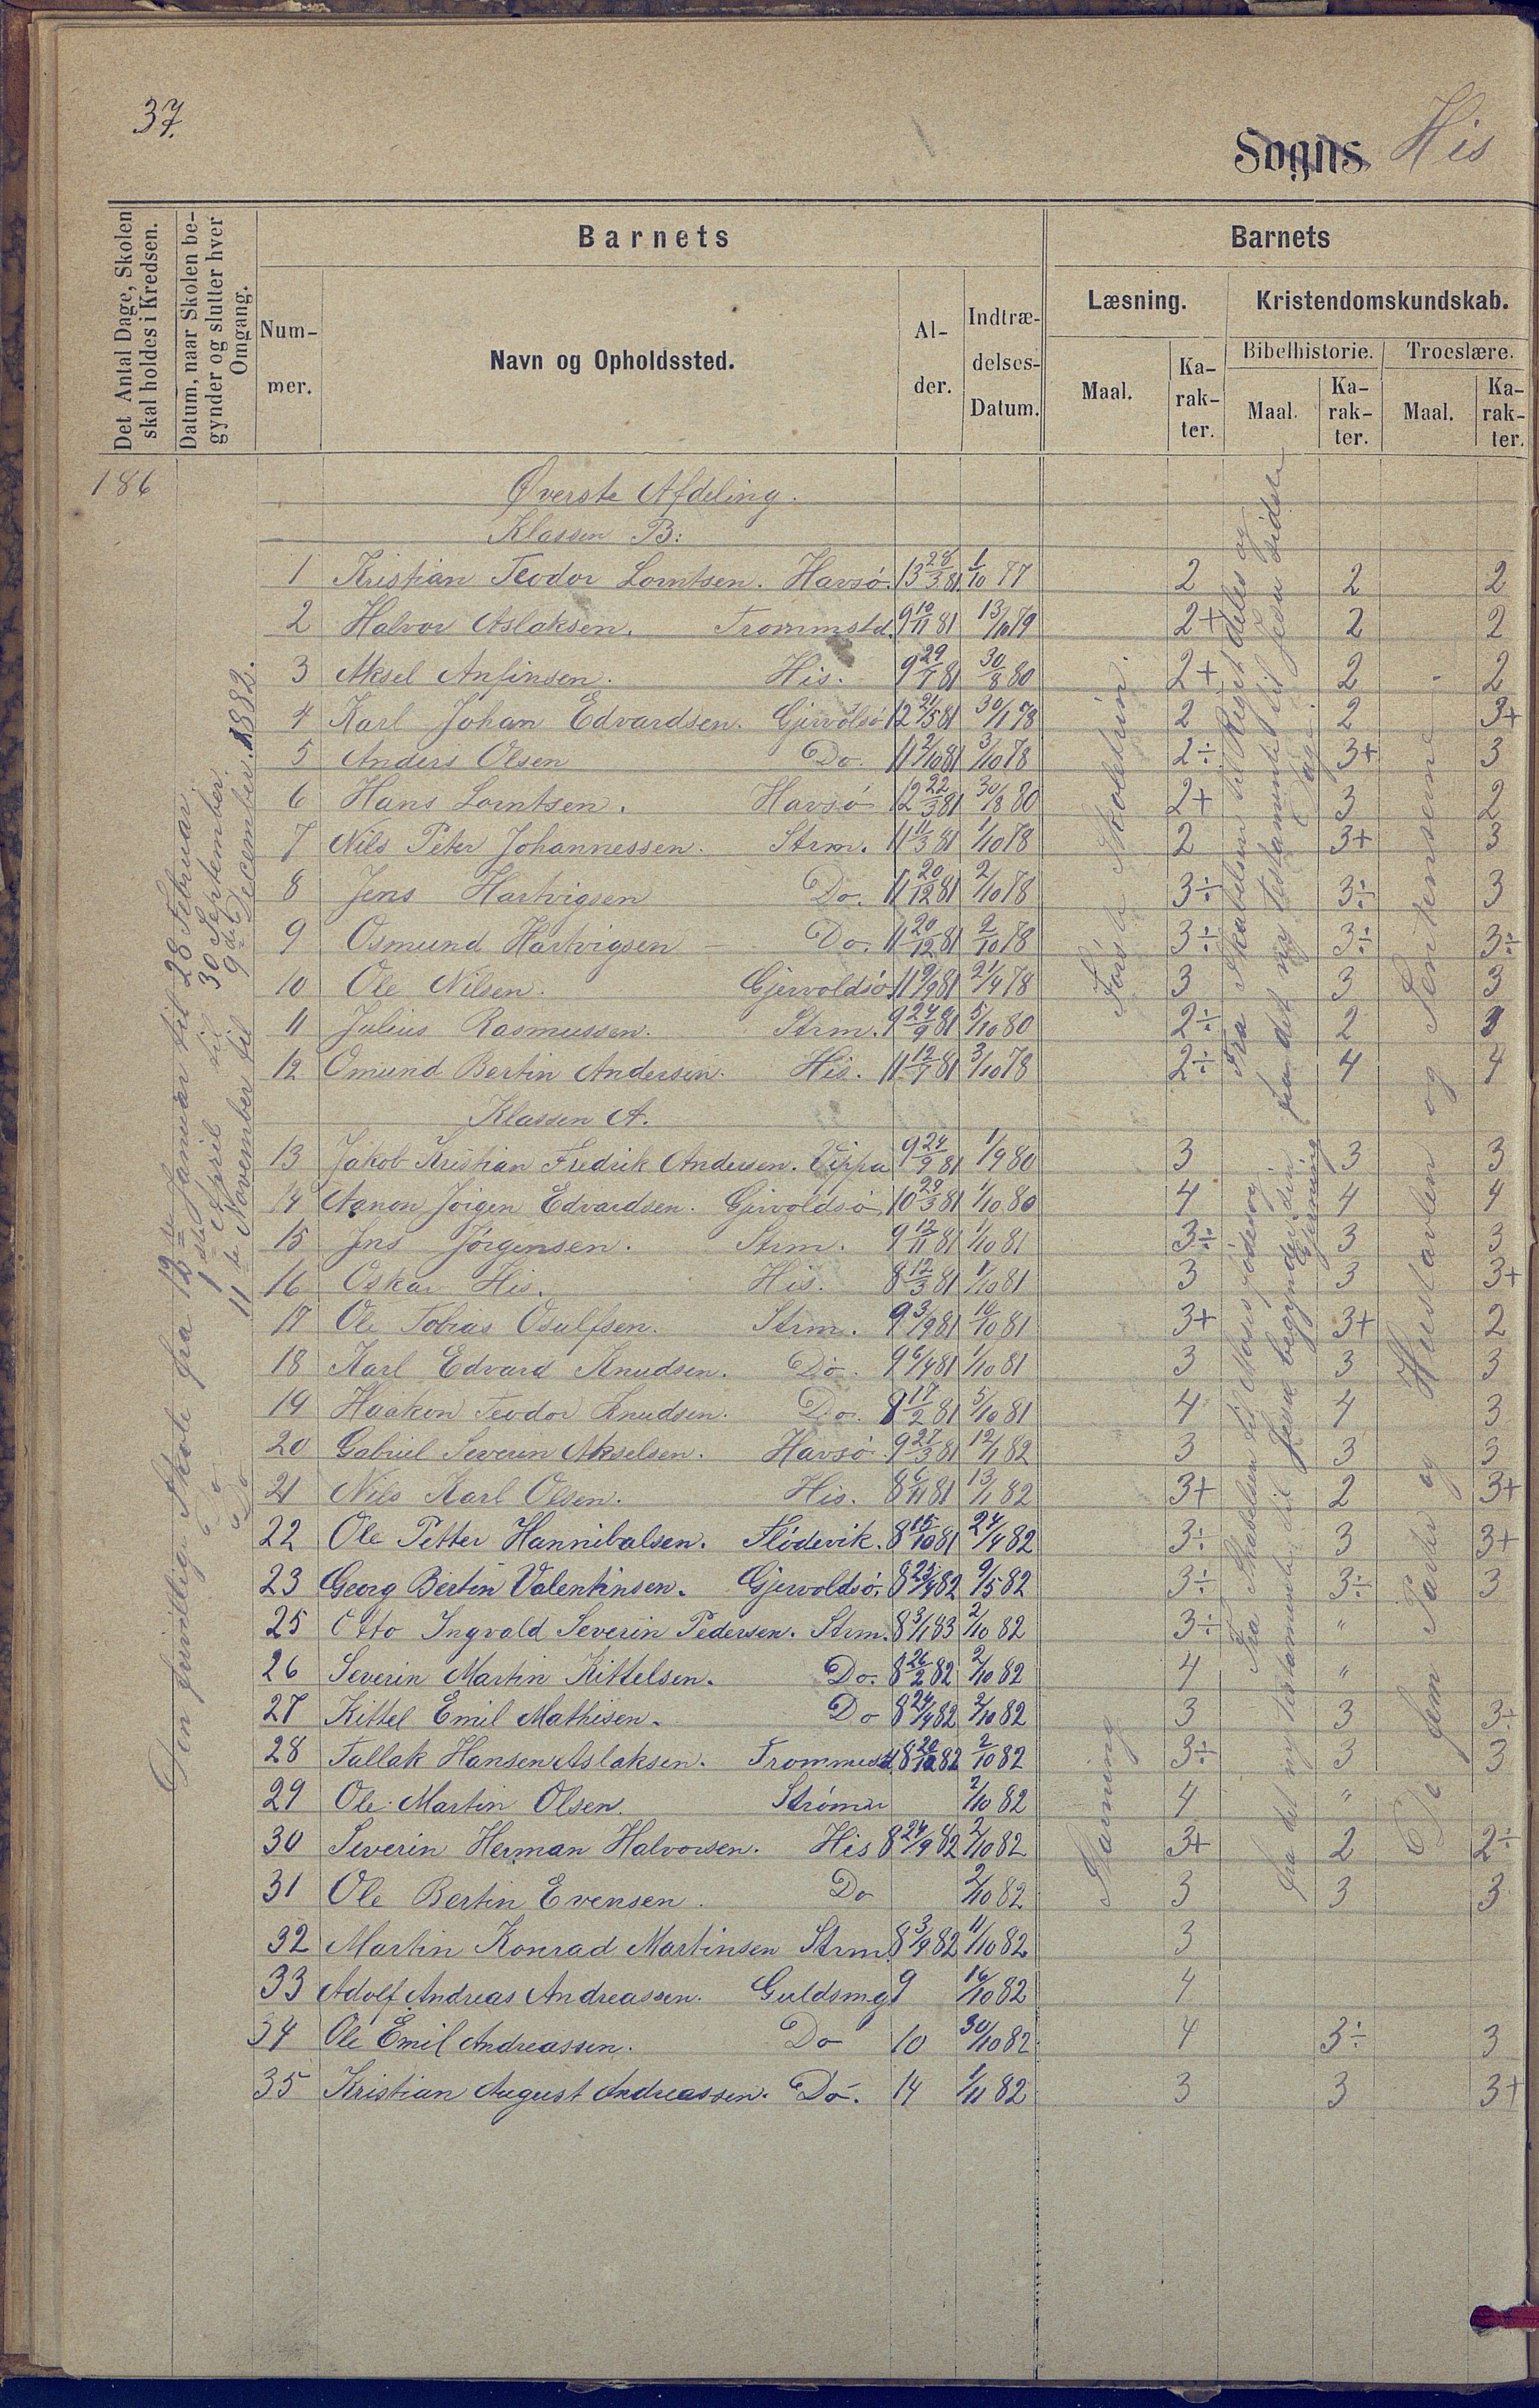 37.
Sogns His
Det Antal Dage, Skolen skal holdes i Kredsen.
Datum, naar Skolen begynder og slutter hver Omgang.
Barnets
Barnets
Num-mer.
Navn og Opholdssted.
Al-der.
Indtræ-delses-Datum.
Læsning.
Kristendomskundskab.
Maal.
Ka-rak-ter.
Bibelhistorie.
Troeslære.
Maal.
Ka-rak-ter.
Maal.
Ka-rak-ter.
186
Den frivillige Skole fra 12te Januar til 28 Februar.
Do 1ste April til 30 September.
Do 11te November til 9de December 1882.
Øverste Afdeling.
Klassen B:
1 Kristian Teodor Lorntsen. Havsø. 13 28/3 81. 1/10 77 2 2 2
2 Halvor Aslaksen. Trommstd. 9 10/11 81 13/10 79 2+ 2 2
3 Aksel Anfinsen. His. 9 29/7 81 30/8 80 2+ 2 2
4 Karl Johan Edvardsen. Gjervoldsø 12 21/5 81 30/1 78 2 2 3+
5 Anders Olsen Do. 11 2/10 81 3/10 78 2÷ 3+ 3
6 Hans Lorntsen. Havsø 12 22/3 81 30/8 80 2+ 3 2
7 Nils Peter Johannessen. Strm. 11 11/3 81 1/10 78 2 3+ 3
8 Jens Hartvigsen Do. 11 20/12 81 2/10 78 3÷ 3÷ 3
9 Osmund Hartvigsen Do. 11 20/12 81 2/10 78 3÷ 3÷ 3÷
10 Ole Nilsen. Gjervoldsø 11 9/9 81 21/4 78 3 3 3
11 Julius Rasmussen. Strm. 9 24/9 81 5/10 80 2÷ 2 3
12 Omund Bertin Andersen. His. 11 12/7 81 3/10 78 2÷ 4 4
Klassen A.
13 Jakob Kristian Fredrik Andersen. Vippa 9 24/9 81 1/9 80 3 3 3
14 Aanon Jørgen Edvardsen. Gjervoldsø 10 29/3 81 1/10 80 4 4 4
15 Jens Jørgensen. Strm. 9 12/11 81 1/10 81 3÷ 3 3
16 Oskar His. His. 8 12/3 81 1/10 81 3 3 3+
17 Ole Tobias Osulfsen. Strm. 9 3/9 81 10/10 81 3+ 3+ 2
18 Karl Edvard Knudsen. Do. 9 6/4 81 1/10 81 3 3 3
19 Haakon Teodor Knudsen. Do. 8 17/2 81 5/10 81 4 4 3
20 Gabriel Severin Akselsen. Havsø 9 27/3 81 12/1 82 3 3 3
21 Nils Karl Olsen. His. 8 6/11 81 13/1 82 3+ 2 3+
22 Ole Petter Hannibalsen. Flødevik. 8 15/10 81 24/4 82 3÷ 3 3+
23 Georg Bertin Valentinsen. Gjervoldsø. 8 25/4 82 9/5 82 3÷ 3÷ 3
25 Otto Ingvald Severin Pedersen. Strm. 8 3/1 83 2/10 82 3÷ "
26 Severin Martin Kittelsen. Do. 8 26/2 82 2/10 82 4 "
27 Kittel Emil Mathisen. Do 8 24/4 82 2/10 82 3 3 3÷
28 Tallak Hansen Aslaksen. Trommest. 8 20/12 82 2/10 82 3÷ 3 3
29 Ole Martin Olsen. Strømen 2/10 82 4 "
30 Severin Herman Halvorsen. His 8 24/9 82 2/10 82 3+ 2 2÷
31 Ole Bertin Evensen. Do 2/10 82 3 3 3
32 Martin Konrad Martinsen Strm. 8 3/9 82 11/10 82 3
33 Adolf Andreas Andreassen. Guldsmg 9 16/10 82 4
34 Ole Emil Andreassen. Do 10 30/10 82 4 3÷ 3
35 Kristian August Andreassen. Do. 14 1/11 82 3 3 3+
Første Skoletrin.
Fra Skabelsen til Riget deles og
fra det ny testamente til Jesu sidste Dage.
Fra Skabelsen til Moses's død og
fra det ny testamente til Jesus begynder sin Gjerning
De fem Parter og Hustavlen og Sentenserne
Stavning